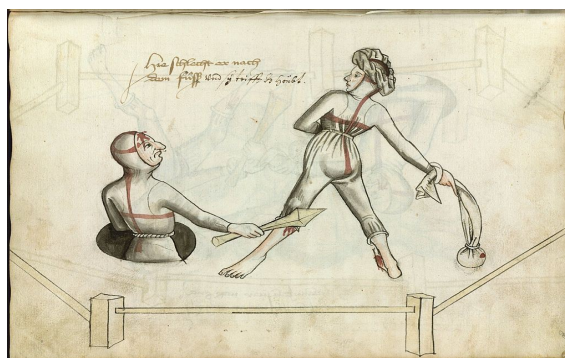 Hie schlecht er nach
dem fuß und sy trifft dz houbt.